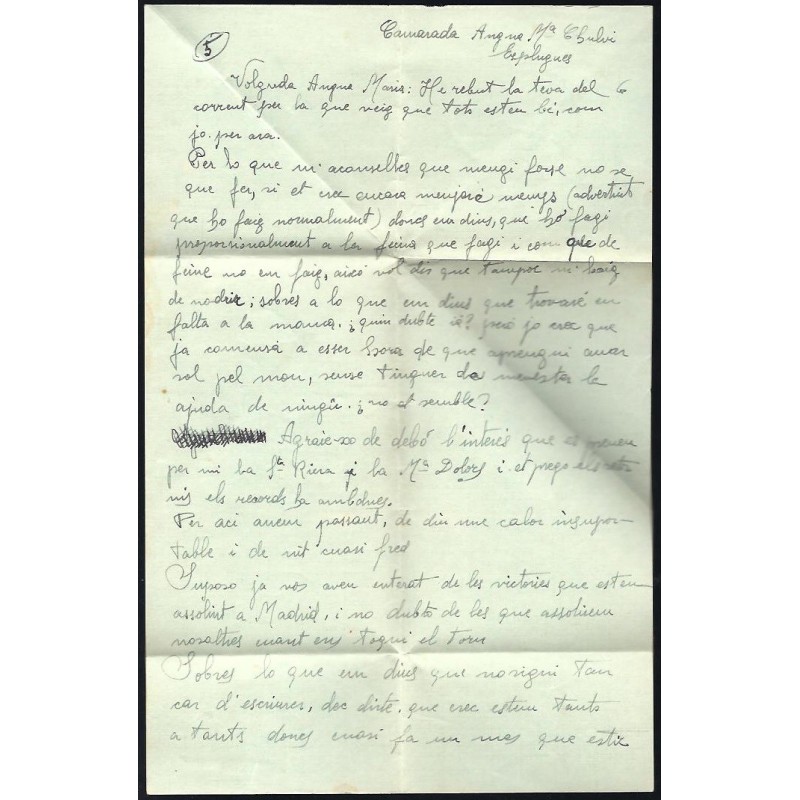 5
Camarada Angna Mª Chulvi
Esplugues
Volguda Angna Maria: He rebut la teva del 6
corrent per la que veig que tots esteu bé, com
jo. per ara.
Per lo que m'aconselles que mengi forse no se
que fer, si et crec encara menjaré menys (advertint
que ho faig normalment) doncs em dius, que ho fagi
proporsionalment a la feina que fagi i com que de
feine no em faig, aixó vol dir que tampoc m'haig
de nodrir; sobres a lo que em dius que trovaré en
falta a la mama. ¿quin dubte iá? peró jo crec que
ja comensá a esser hora de que aprengui anar
sol pel mon, sense tinguer de menester la
ajuda de ningú. ¿no et semble?
Agraie-xo de debó l'interés que es prenen
per mi la Sta Riera i la Mª Dolors i et prego els
els records ha ambdues.
Per aci anem passant, de dia une calor insupor-
table i de nit cuasi fred
Suposo ja vos aveu enterat de les victories que estem
assolint a Madrid, i no dubto de les que assolirem
nosaltres cuant ens toqui el torn
Sobres lo que em dius que no sigui tan
car d'escriures, dec dirte, que crec estem tants
a tants doncs cuasi fa un mes que estic